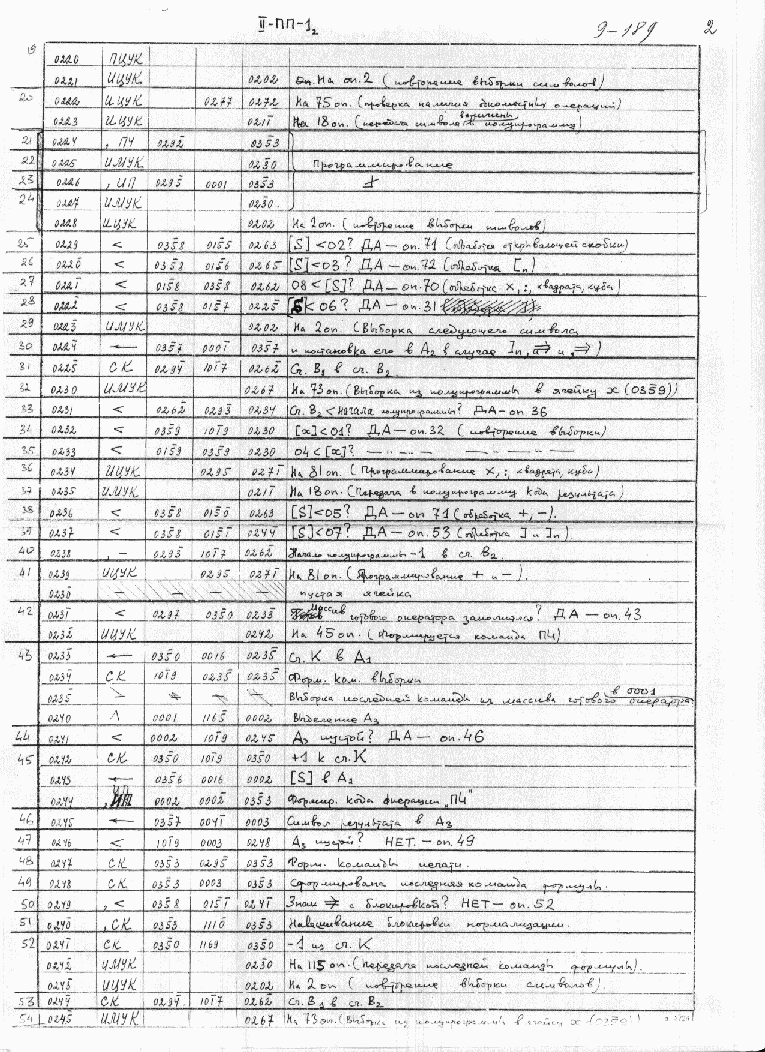 II-ПП-1₂ 9-189 2
19 0220 ПЦУК
0221 ИЦУК 0202 На оп.2 (повторение выборки символов)
20 0222 ИЦУК 0277 0272 На 75 оп. (проверка наличия одноместных операций)
0223 ИЦУК 0211̄ На 18 оп. (передача символа величины в полупрограмму)
21 0224 , ПЧ 0292̄ 0353̄
22 0225 ИМУК 023̄0 Программирование
23 0226 , ИП 0293̄ 0001 0353̄
24 0227 ИМУК 023̄0
0228 ИЦУК 0202 На 2 оп. (повторение выборки символов)
25 0229 < 035̄8 015̄5 0263 [S] <02? ДА — оп. 71 (обработка открывающей скобки)
26 022̄0 < 035̄8 015̄6 0265 [S] <03? ДА — оп. 72 (обработка [n)
27 022̄1 < 015̄8 035̄8 0262 08 < [S]? ДА — оп. 70 (обработка ×, :, квадрата, куба)
28 022̄2 < 035̄8 015̄7 0225̄ [S] < 06? ДА — оп. 31
29 022̄3 ИМУК 0202 На 2 оп. (Выборка следующего символа
30 022̄4 ← 035̄7 0001̄ 035̄7 и постановка его в А₂ в случае ]n, ⇒ и ⇒)
31 022̄5 СК 0294̄ 101̄7 0262̄ Сч. В₁ в сч. В₂
32 0230 ИМУК 0267 На 73 оп. (Выборка из полупрограммы в ячейку x (0359))
33 0231 < 0262̄ 0293̄ 0234 Сч. В₂ < начала полупрограммы? ДА — оп. 36
34 0232 < 035̄9 101̄9 0230 [x] < 01? ДА — оп. 32 (повторение выборки)
35 0233 < 015̄9 035̄9 0230 04 < [x]? — " — " — " —
36 0234 ИЦУК 0295 0271̄ На 81 оп. (Программирование ×, :, квадрата, куба)
37 0235 ИМУК 0211̄ На 18 оп. (Передача в полупрограмму кода результата)
38 0236 < 035̄8 015̄0 0263 [S] < 05? ДА — оп 71 (обработка +, –).
39 0237 < 035̄8 015̄1 0244̄ [S] < 07? ДА — оп. 53 (обработка ] и ]n)
40 0238 , – 0293̄ 101̄7 0262̄ Начало полупрограммы –1 в сч. В₂
41 0239 ИЦУК 0295 0271̄ На 81 оп. (Программирование + и –).
023̄0 – – – – пустая ячейка
42 023̄1 < 0297 035̄0 0233̄ Массив готового оператора заполнился? ДА — оп. 43
023̄2 ИЦУК 0242 На 45 оп. (Формируется команда ПЧ)
43 023̄3 ← 035̄0 0016 023̄5 Сч. К в А₁
023̄4 СК 101̄9 023̄5 023̄5 Форм. ком. выборки
023̄5 Выборка последней команды из массива готового оператора в 0001
0240 Λ 0001 1165̄ 0002 Выделение А₃
44 0241 < 0002 101̄9 0245 А₃ пустой? ДА — оп. 46
45 0242 СК 035̄0 101̄9 035̄0 +1 к сч. К
0243 ← 0356 0016 0002 [S] в А₁
0244 0002 0002̄ 0353̄ Формир. кода операции „ПЧ"
46 0245 ← 035̄7 0041̄ 0003 Символ результата в А₃
47 0246 < 101̄9 0003 0248 А₃ пустой? НЕТ. — оп. 49
48 0247 СК 0353̄ 0295̄ 0353̄ Форм. команды печати.
49 0248 СК 0353̄ 0003 0353̄ Сформирована последняя команда формулы.
50 0249 , < 035̄8 015̄1̄ 0241̄ Знак ⇒ с блокировкой? НЕТ — оп. 52
51 024̄0 , СК 0353̄ 111̄0 0353̄ Навешивание блокировки нормализации.
52 024̄1 СК 035̄0 1169 035̄0 –1 из сч. К
024̄2 ИМУК 023̄0 На 115 оп. (передача последней команды формулы).
024̄3 ИЦУК 0202 На 2 оп (повторение выборки символов).
53 024̄4 СК 0294̄ 101̄7 0262̄ Сч. В₁ в сч. В₂
54 024̄5 ИМУК 0267 На 73 оп. (Выборка из полупрограммы в ячейку x